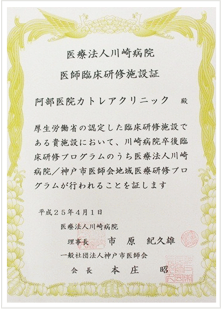 医療法人川崎病院
医師臨床研修施設証
阿部医院カトレアクリニック 殿
厚生労働省の認定した臨床研修施設で
ある貴施設において、川崎病院卒後臨
床研修プログラムのうち医療法人川崎
病院/神戸市医師会地域医療研修プロ
グラムが行われることを証します
平成25年4月1日
医療法人川崎病院
理事長 市原 紀久雄
一般社団法人神戸市医師会
会長 本庄 昭